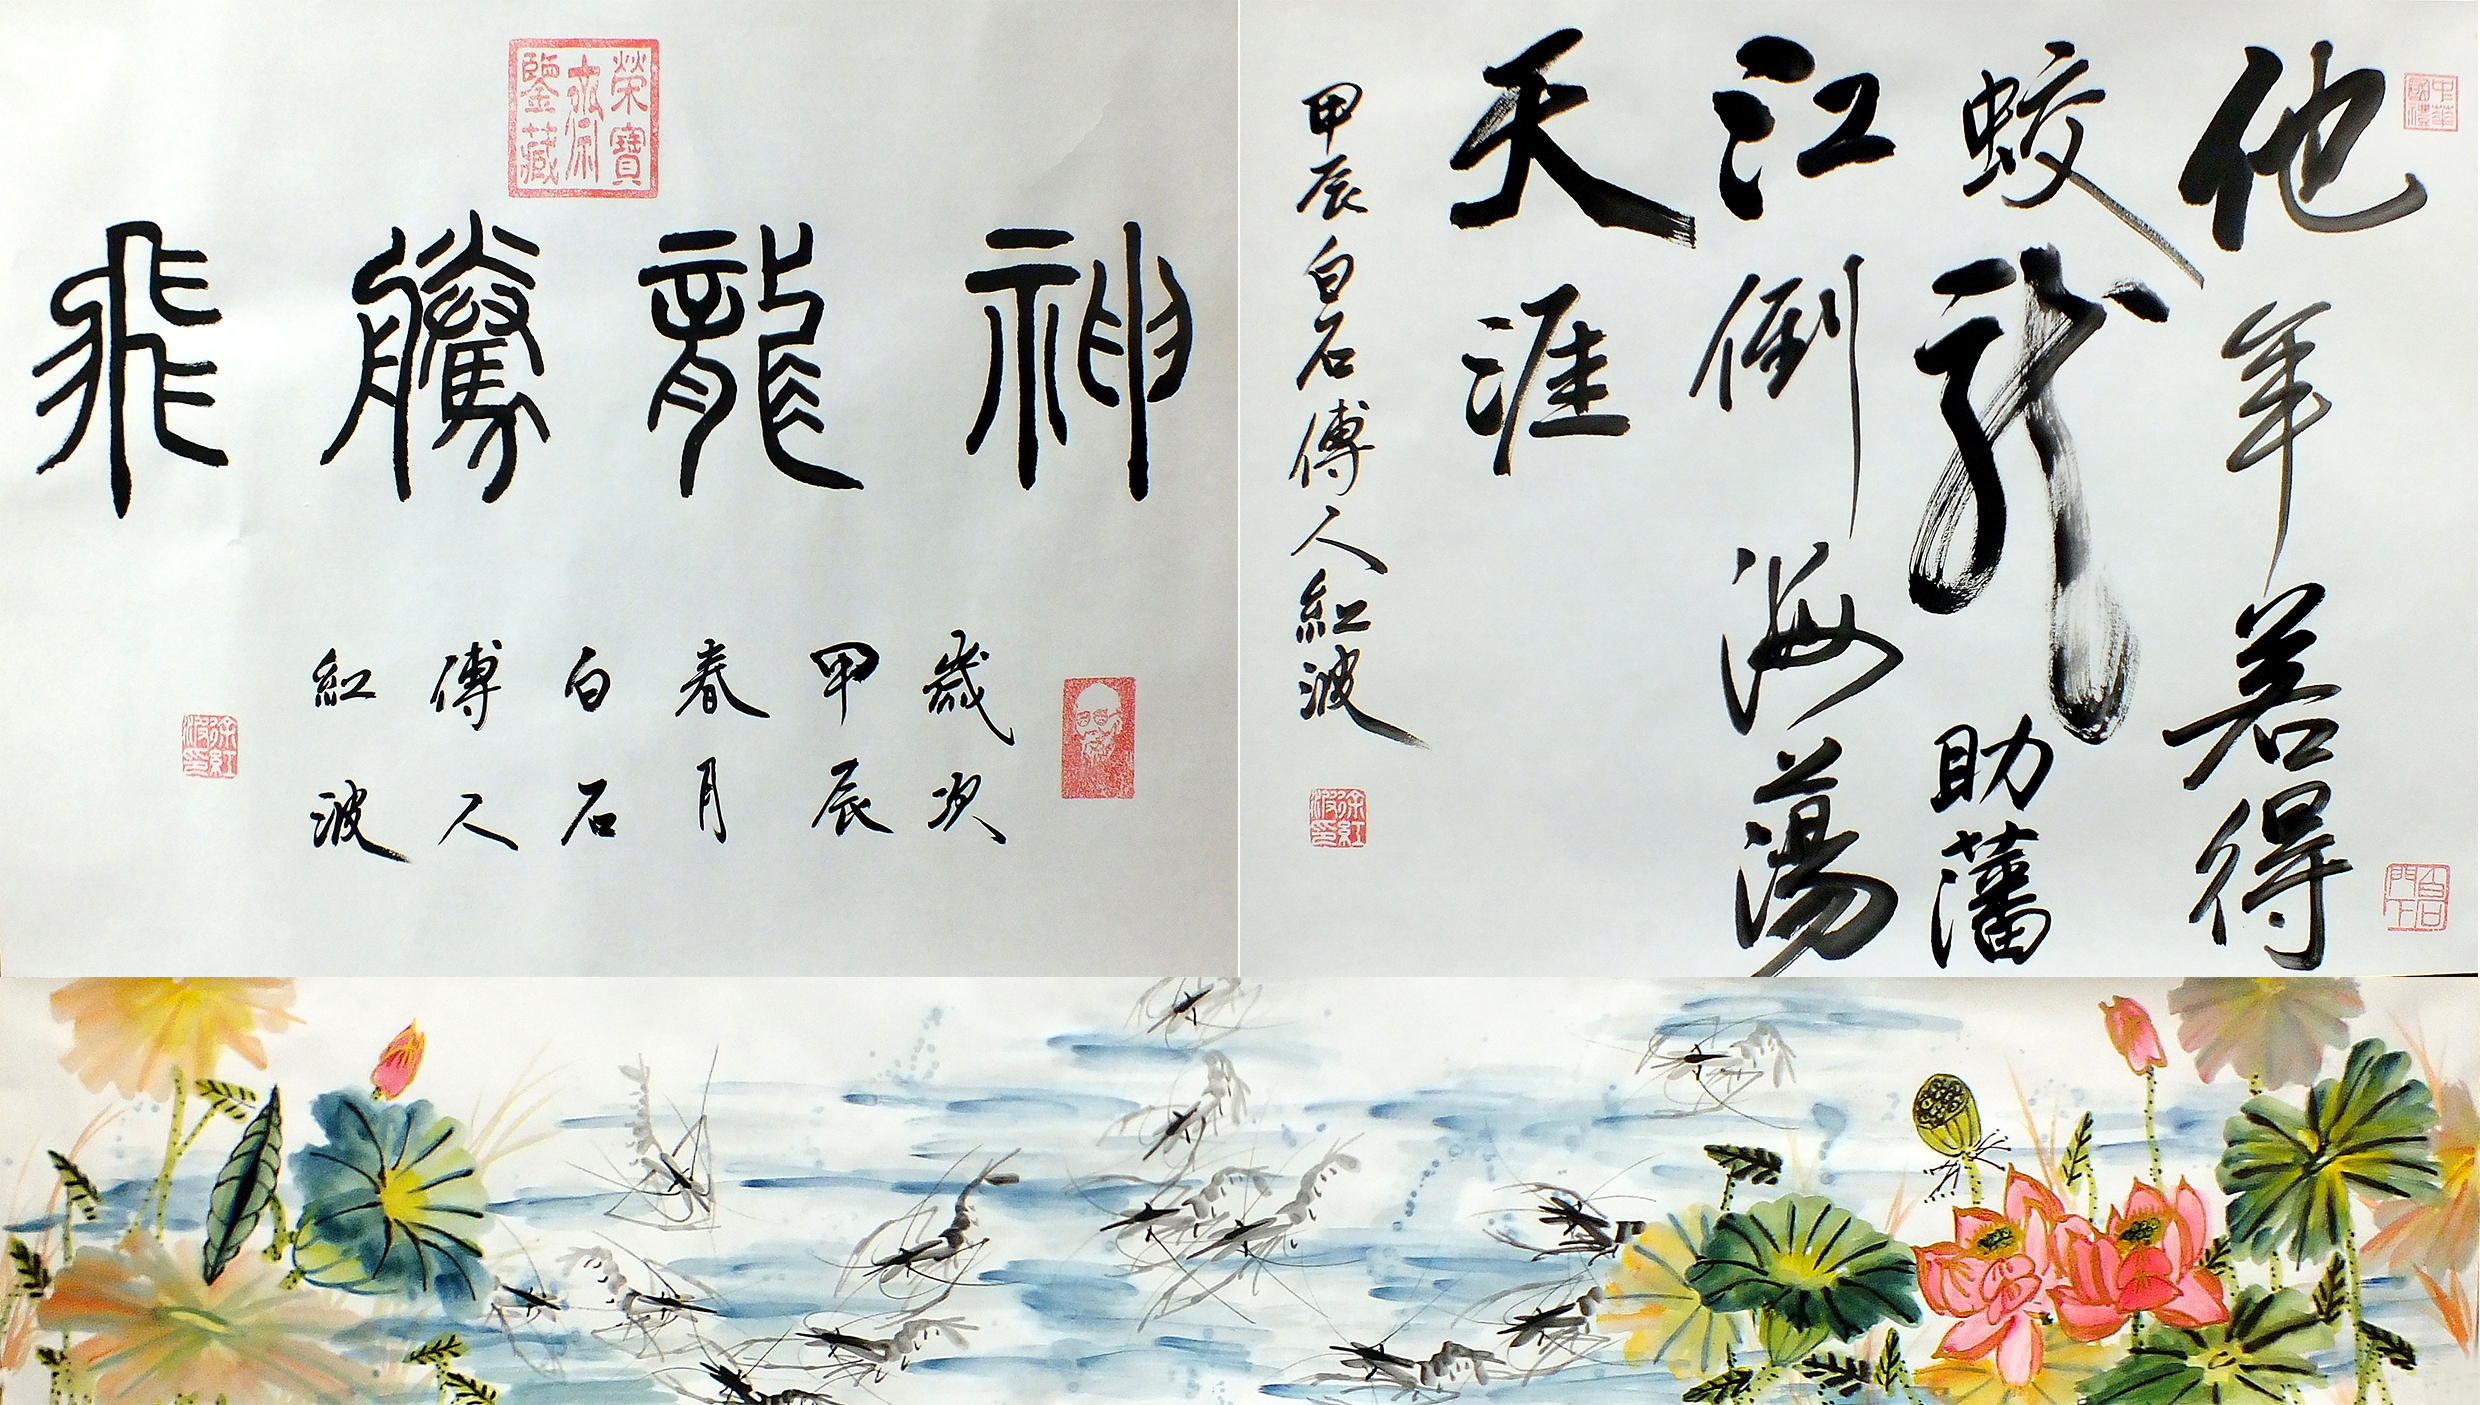 榮寶齋鑒藏
神龍騰飛
歲次
甲辰
春月
白石
傳人
紅波
徐紅波印
中華國禮
他年若得
蛟龍助藩
江倒海蕩
天涯
甲辰白石傳人紅波
徐紅波印